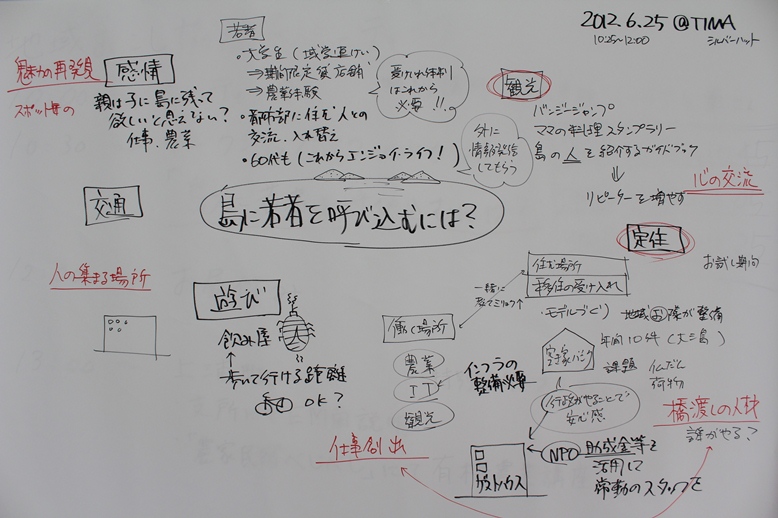 2012.6.25 @TIMA
10:25~12:00 シルバーハット
若者
・大学生(域学連けい)
⇒期間限定食店舗
⇒農業体験
・都市部に住む人との
交流・入れ替え
・60代も(これからエンジョイライフ!)
受け入れ体制
はこれから
必要!!
外に
情報発信
してもらう
魅力の再発見
スポット毎の
感情
親は子に島に残って
欲しいと思えない?
仕事、農業
観光
バンジージャンプ
ママの料理スタンプラリー
島の人を紹介するガイドブック
リピーターを増やす
心の交流
交通
島に若者を呼び込むには?
定住
お試し期間
住む場所
移住の受け入れ
・モデルづくり
一緒に
人の集まる場所
遊び
飲み屋
人
歩いて行ける距離
OK?
働く場所
農業
IT
観光
インフラの
整備必要
空き家バンク
年間10件(大三島)
課題 仏だん
荷物
行政がやることで
安心感
仕事創出
橋渡しの人材
誰がやる?
ゲストハウス
NPO 助成金等を
活用して
常勤のスタッフを